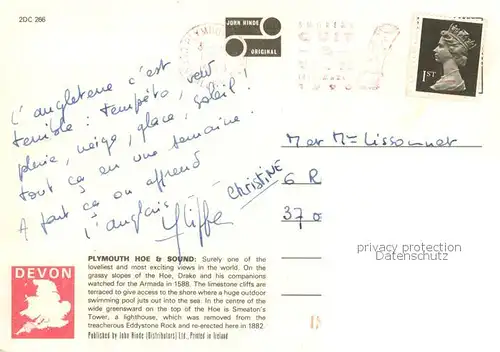 2DC 286
JOHN HINDE
ORIGINAL
1ST
L'angleterre c'est
terrible : tempête, vent
pluie, neige, glace, soleil !
tout ça en une semaine.
A part ça on apprend
l'anglais
Christine
M et Mme Lissonnet
6 R
37 0
privacy protection
Datenschutz
DEVON
PLYMOUTH HOE & SOUND: Surely one of the
loveliest and most exciting views in the world. On the
grassy slopes of the Hoe, Drake and his companions
watched for the Armada in 1588. The limestone cliffs are
terraced to give access to the shore where a huge outdoor
swimming pool juts out into the sea. In the centre of the
wide greensward on the top of the Hoe is Smeaton's
Tower, a lighthouse, which was removed from the
treacherous Eddystone Rock and re-erected here in 1882.
Published by John Hinde (Distributors) Ltd., Printed in Ireland